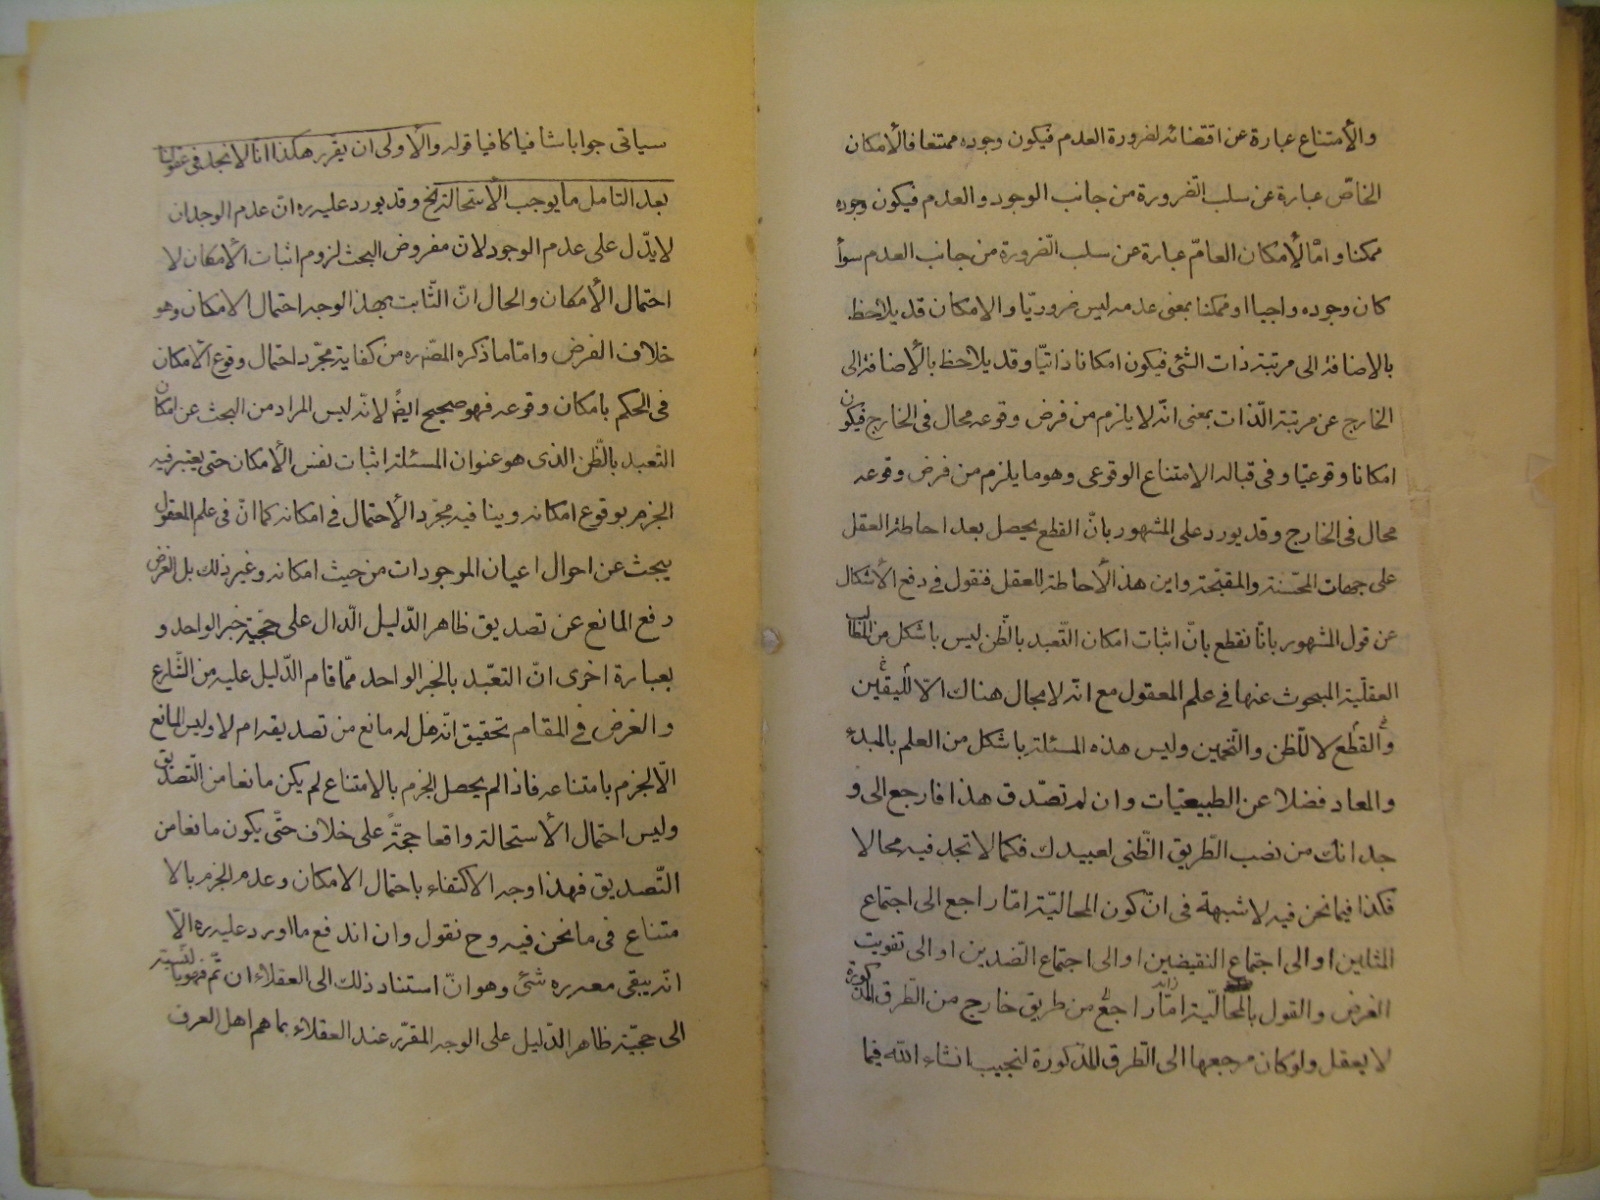 والأمتناع عبارة عن اقتضائه لضرورة العدم فيكون وجوده ممتنعا فالأمكان
الخاصّ عبارة عن سلب الضّرورة من جانب الوجود والعدم فيكون وجوده
ممكنا وامّا الأمكان العامّ عبارة عن سلب الضّرورة من جانب العدم سواء
كان وجوده واجبا او ممكنا بمعنى عدمه ليس ضروريّا والامكان قد يلاحظ
بالاضافة الى مرتبة ذات الشئ فيكون امكانا ذاتيّا وقد يلاحظ بالأضافة الى
الخارج عن مرتبة الذّات بمعنى انّه لا يلزم من فرض وقوعه محال فى الخارج فيكون
امكانا وقوعيّا وفى قباله الامتناع الوقوعى وهو ما يلزم من فرض وقوعه
محال فى الخارج وقد يورد على المشهور بانّ القطع يحصل بعد احاطة العقل
على جهات المحسّنة والمقبّحة واين هذا الأحاطة للعقل فنقول فى دفع الأشكال
عن قول المشهور بانّا نقطع بانّ اثبات امكان التّعبد بالظّن ليس باشكل من المطالب
العقليّة المبحوث عنها فى علم المعقول مع انّه لا مجال هناك الّا لليقين
والقطع لا للظّن والتّخمين وليس هذه المسئلة باشكل من العلم بالمبدء
والمعاد فضلا عن الطبيعيّات وان لم تصدّق هذا فارجع الى و
جدانك من نصب الطّريق الظّنى لعبيدك فكما لا تجد فيه محالا
فكذا فيما نحن فيه لا شبهة فى انّ كون المحاليّة امّا راجع الى اجتماع
المثلين او الى اجتماع النقيضين او الى اجتماع الضّدين او الى تفويت
الغرض والقول بالمحاليّة امّا راجع من طريق خارج من الطّرق المذكورة
لا يعقل ولو كان مرجعها الى الطّرق المذكورة لنجيب انشاء الله فيما
سياتى جوابا شافيا كافيا قوله والأولى ان يقرر هكذا انّا لا نجد فى عقولنا
بعد التامل ما يوجب الأستحالة الخ وقد يورد عليه ره انّ عدم الوجدان
لا يدّل على عدم الوجود لانّ مفروض البحث لزوم اثبات الأمكان لا
احتمال الأمكان والحال انّ الثّابت بهذا الوجه احتمال الامكان وهو
خلاف الفرض وامّا ما ذكره المصّ ره من كفاية مجرّد احتمال وقوع الامكان
فى الحكم بامكان وقوعه فهو صحيح ايضً لانّه ليس المراد من البحث عن امكان
التّعبد بالظّن الذى هو عنوان المسئلة اثبات نفس الأمكان حتى يعتبر فيه
الجزم بوقوع امكانه وينافيه مجرّد الأحتمال فى امكانه كما انّ فى علم المعقول
يبحث عن احوال اعيان الموجودات من حيث امكانه وغير ذلك بل الغرض
دفع المانع عن تصديق ظاهر الدّليل الدّال على حجية خبر الواحد و
بعبارة اخرى انّ التعبّد بالخبر الواحد ممّا قام الدّليل عليه من الشّارع
والغرض فى المقام تحقيق انّه هل له مانع من تصديقه ام لا وليس المانع
الّا الجزم بامتناعه فاذا لم يحصل الجزم بالامتناع لم يكن مانعا من التّصديق
وليس احتمال الأستحالة واقعا حجةً على خلاف حتّى يكون مانعا من
التّصديق فهذا وجه الاكتفاء باحتمال الامكان وعدم الجزم بالا
متناع فى ما نحن فيه وح نقول وان اندفع ما اورد عليه ره الّا
انّه يبقى معه ره شئ وهو انّ استناد ذلك الى العقلاء ان تمّ فهو بالنّسبة
الى حجيّة ظاهر الدّليل على الوجه المقرّر عند العقلاء بما هم اهل العرف